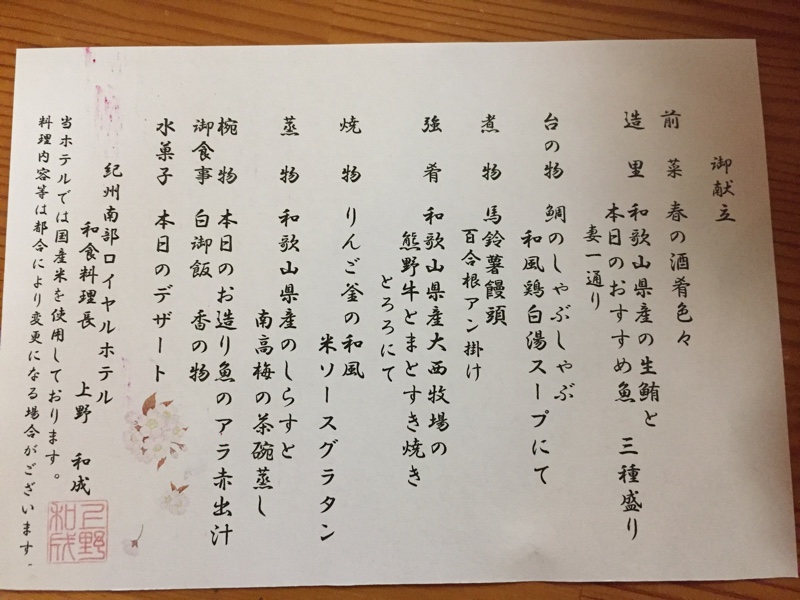 御献立
前菜 春の酒肴色々
造里 和歌山県産の生鮪と
本日のおすすめ魚 三種盛り
妻一通り
台の物 鯛のしゃぶしゃぶ
和風鶏白湯スープにて
煮物 馬鈴薯饅頭
百合根アン掛け
強肴 和歌山県産大西牧場の
熊野牛とまとすき焼き
とろろにて
焼物 りんご釜の和風
米ソースグラタン
蒸物 和歌山県産のしらすと
南高梅の茶碗蒸し
椀物 本日のお造り魚のアラ赤出汁
御食事 白御飯 香の物
水菓子 本日のデザート
紀州南部ロイヤルホテル
和食料理長 上野 和成
当ホテルでは国産米を使用しております。
料理内容等は都合により変更になる場合がございます。
上野
和成